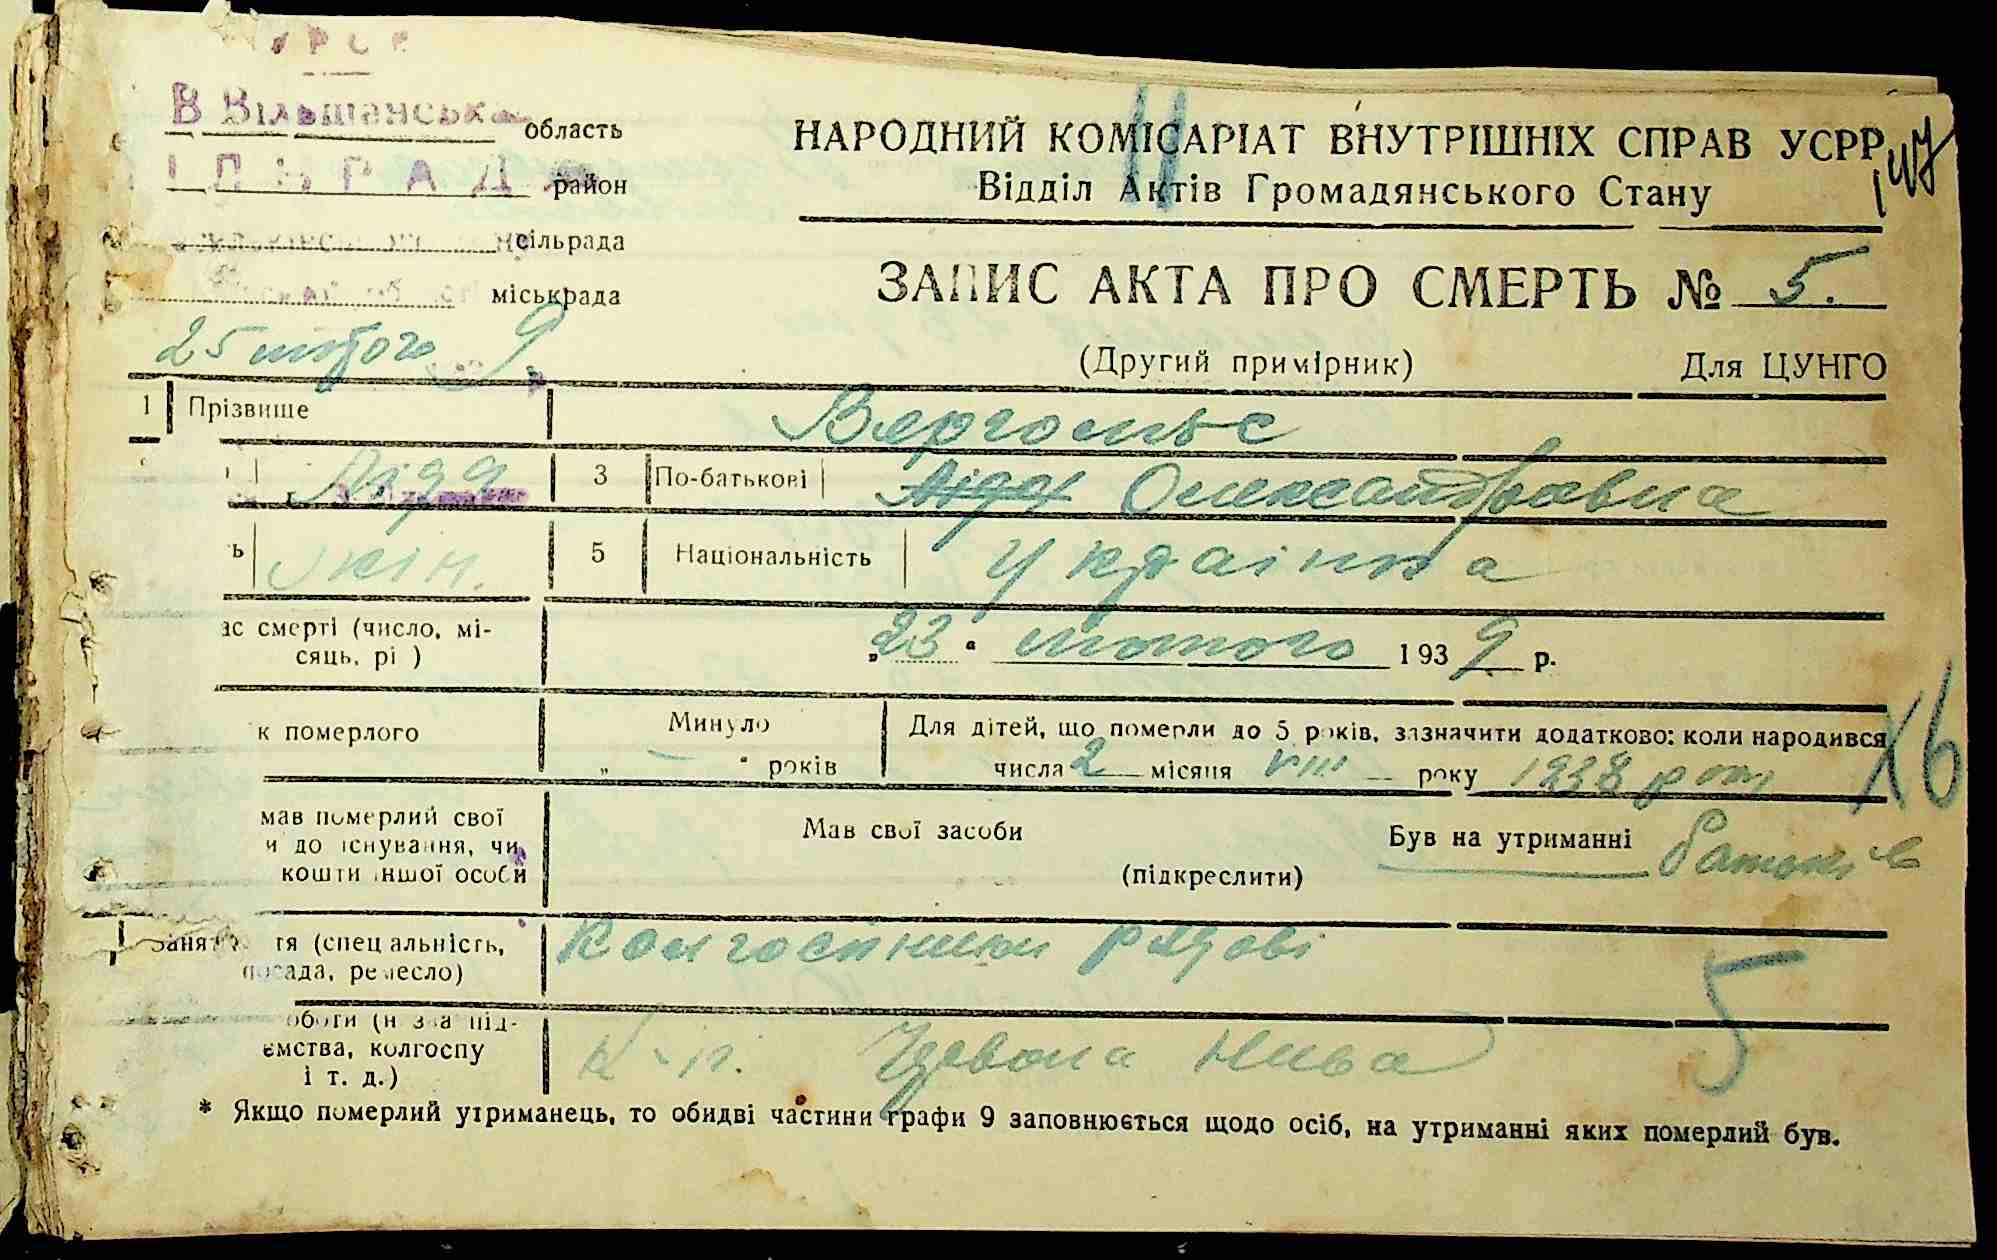 УРСР
В Вільшанська область
СІЛЬРАДА район
сільрада
міськрада
25 лютого 9
НАРОДНИЙ КОМІСАРІАТ ВНУТРІШНІХ СПРАВ УСРР
Відділ Актів Громадянського Стану
ЗАПИС АКТА ПРО СМЕРТЬ № 5.
(Другий примірник) Для ЦУНГО
1 Прізвище
Ліда 3 По-батькові Ліда Олександрівна
ь жін. 5 Національність Українка
ас смерті (число, мі-
сяць, рі )
„23“ лютого 1939 р.
к померлого
Минуло
„ — “ років
Для дітей, що померли до 5 років, зазначити додатково: коли народився
числа 2 місяця VIII року 1938 рот
Х6
мав померлий свої
и до існування, чи
кошти іншої особи
Мав свої засоби
(підкреслити)
Був на утриманні батьків
Заняття (спеціальність,
посада, ремесло)
Колгоспники рядові
5
оботи (назва під-
ємства, колгоспу
і т. д.)
к-п. Червона Нива
* Якщо померлий утриманець, то обидві частини графи 9 заповнюється щодо осіб, на утриманні яких померлий був.